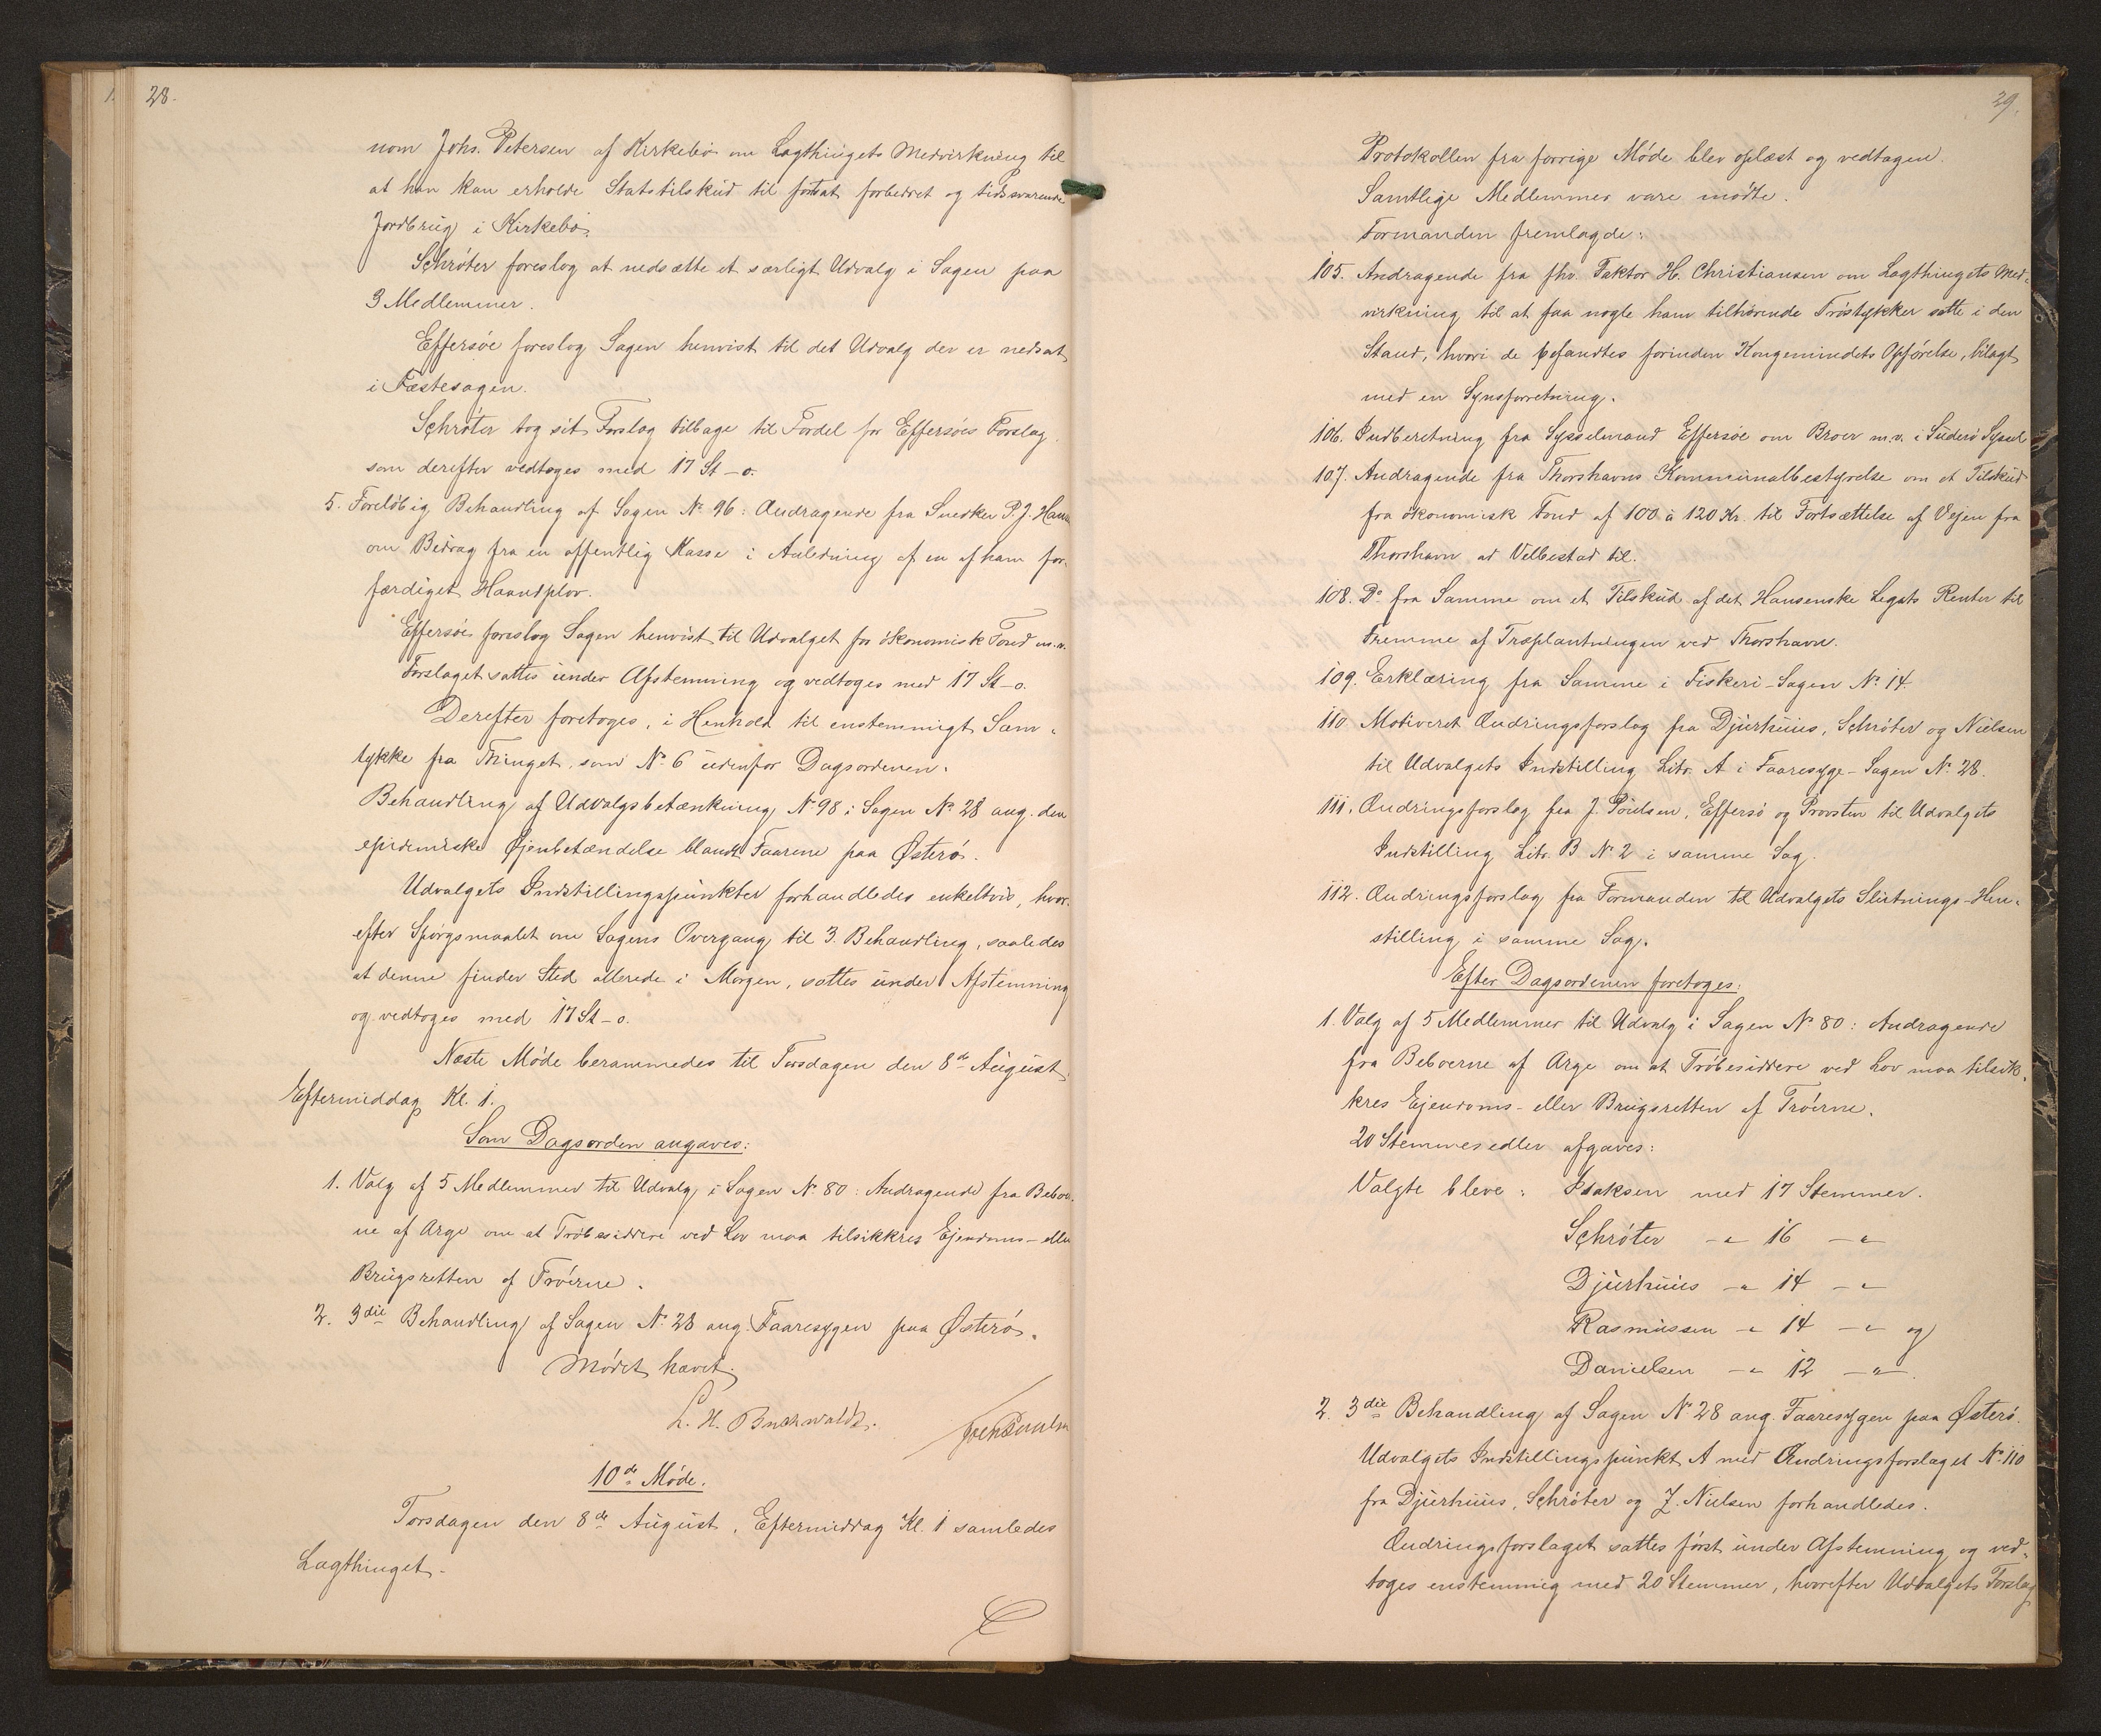 28.
nom Johs. Petersen af Kirkebø om Lagthingets Medvirkning til
at han kan erholde Statstilskud til fortsat forbedret og tidssvarende
Jordbrug i Kirkebø.
Schrøter foreslog at nedsætte et særligt Udvalg i Sagen paa
3 Medlemmer.
Effersøe foreslog Sagen henvist til det Udvalg der er nedsat
i Fæstesagen.
Schrøter tog sit Forslag tilbage til Fordel for Effersøes Forslag
som derefter vedtoges med 17 St - 0.
5. Foreløbig Behandling af Sagen No 96: Andragende fra Snedker P. J. Ham
om Bidrag fra en offentlig Kasse i Anledning af en af ham for-
færdiget Haandplov.
Effersøe foreslog Sagen henvist til Udvalget for økonomisk Fond m.v.
Forslaget sattes under Afstemning og vedtoges med 17 St - 0.
Derefter foretoges, i Henhold til enstemmigt Sam-
tykke fra Thinget, som No 6 udenfor Dagsordenen.
Behandling af Udvalgsbetænkning No 98 i Sagen No 28 ang. den
epidemiske Øjenbetændelse blandt Faarene paa Østerø.
Udvalgets Indstillingspunkter forhandledes enkeltvis, hvor-
efter Spørgsmaalet om Sagens Overgang til 3. Behandling, saaledes
at denne finder Sted allerede i Morgen, sattes under Afstemning
og vedtoges med 17 St - 0.
Næste Møde berammedes til Torsdagen den 8de August
Eftermiddag Kl. 1.
Som Dagsorden angaves:
1. Valg af 5 Medlemmer til Udvalg i Sagen No 80: Andragende fra Beboer-
ne af Arge om at Trøbesiddere ved Lov maa tilsikkres Ejendoms- eller
Brugsretten af Trøerne.
2. 3die Behandling af Sagen No 28 ang. Faaresygen paa Østerø.
Mødet hævet.
L. H. Buchwaldt.
10de Møde.
Torsdagen den 8de August, Eftermiddag Kl. 1 samledes
Lagthinget.
29.
Protokollen fra forrige Møde blev oplæst og vedtagen.
Samtlige Medlemmer vare mødte.
Formanden fremlagde:
105. Andragende fra fhv. Faktor H. Christiansen om Lagthingets Med-
virkning til at faa nogle ham tilhørende Trøstykker satte i den
Stand, hvori de befandtes forinden Kongemindets Opførelse, bilagt
med en Synsforretning.
106. Indberetning fra Sysselmand Effersøe om Broer m.v. i Suderø Syssel
107. Andragende fra Thorshavns Kommunalbestyrelse om et Tilskud
fra økonomisk Fond af 100 à 120 Kr. til Fortsættelse af Vejen fra
Thorshavn ad Velbestad til.
108. Do fra Samme om et Tilskud af det Hansenske Legats Renter til
Fremme af Træplantningen ved Thorshavn.
109. Erklæring fra Samme i Fiskeri-Sagen No 14.
110. Motiveret Ændringsforslag fra Djurhuus, Schrøter og Nielsen
til Udvalgets Indstilling Litr. A i Faaresyge-Sagen No 28.
111. Ændringsforslag fra J. Poulsen, Effersø og Provsten til Udvalgets
Indstilling Litr. B No 2 i samme Sag.
112. Ændringsforslag fra Formanden til Udvalgets Slutnings-Hen-
stilling i samme Sag.
Efter Dagsordenen foretoges:
1. Valg af 5 Medlemmer til Udvalg i Sagen No 80: Andragende
fra Beboerne af Arge om at Trøbesiddere ved Lov maa tilsik-
kres Ejendoms- eller Brugsretten af Trøerne.
20 Stemmesedler afgaves:
Valgte bleve: Isaksen med 17 Stemmer.
Schrøter -"- 16 -"-
Djurhuus -"- 14 -"-
Rasmussen -"- 14 -"- og
Danielsen -"- 12 -"-.
2. 3die Behandling af Sagen No 28 ang. Faaresygen paa Østerø.
Udvalgets Indstillingspunkt A med Ændringsforslaget No 110
fra Djurhuus, Schrøter og J. Nielsen forhandledes.
Ændringsforslaget sattes først under Afstemning og ved-
toges enstemmig med 20 Stemmer, hvorefter Udvalgets Forslag